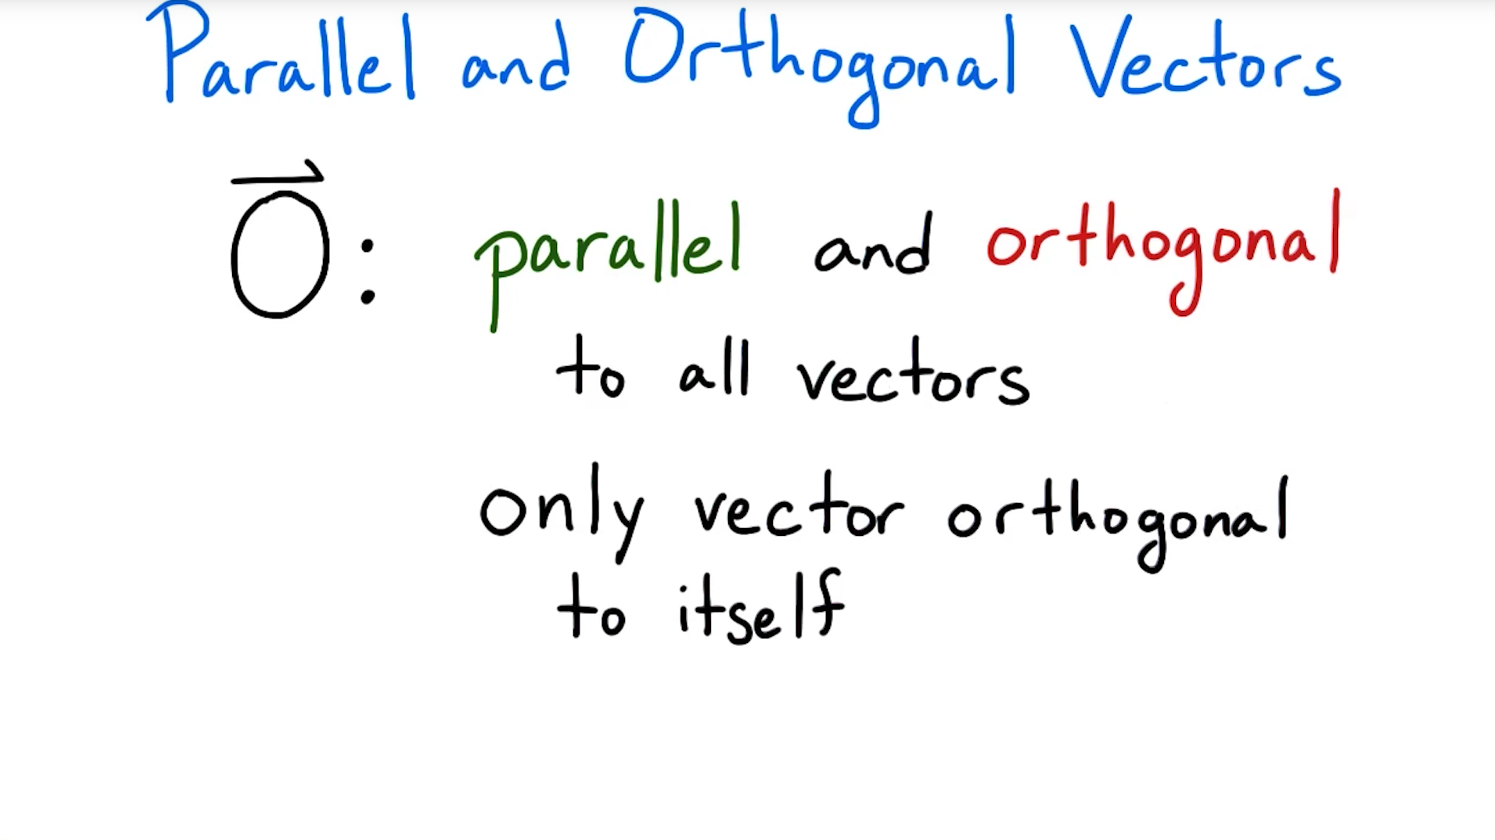 Parallel and Orthogonal Vectors
0⃗: parallel and orthogonal
to all vectors
only vector orthogonal
to itself